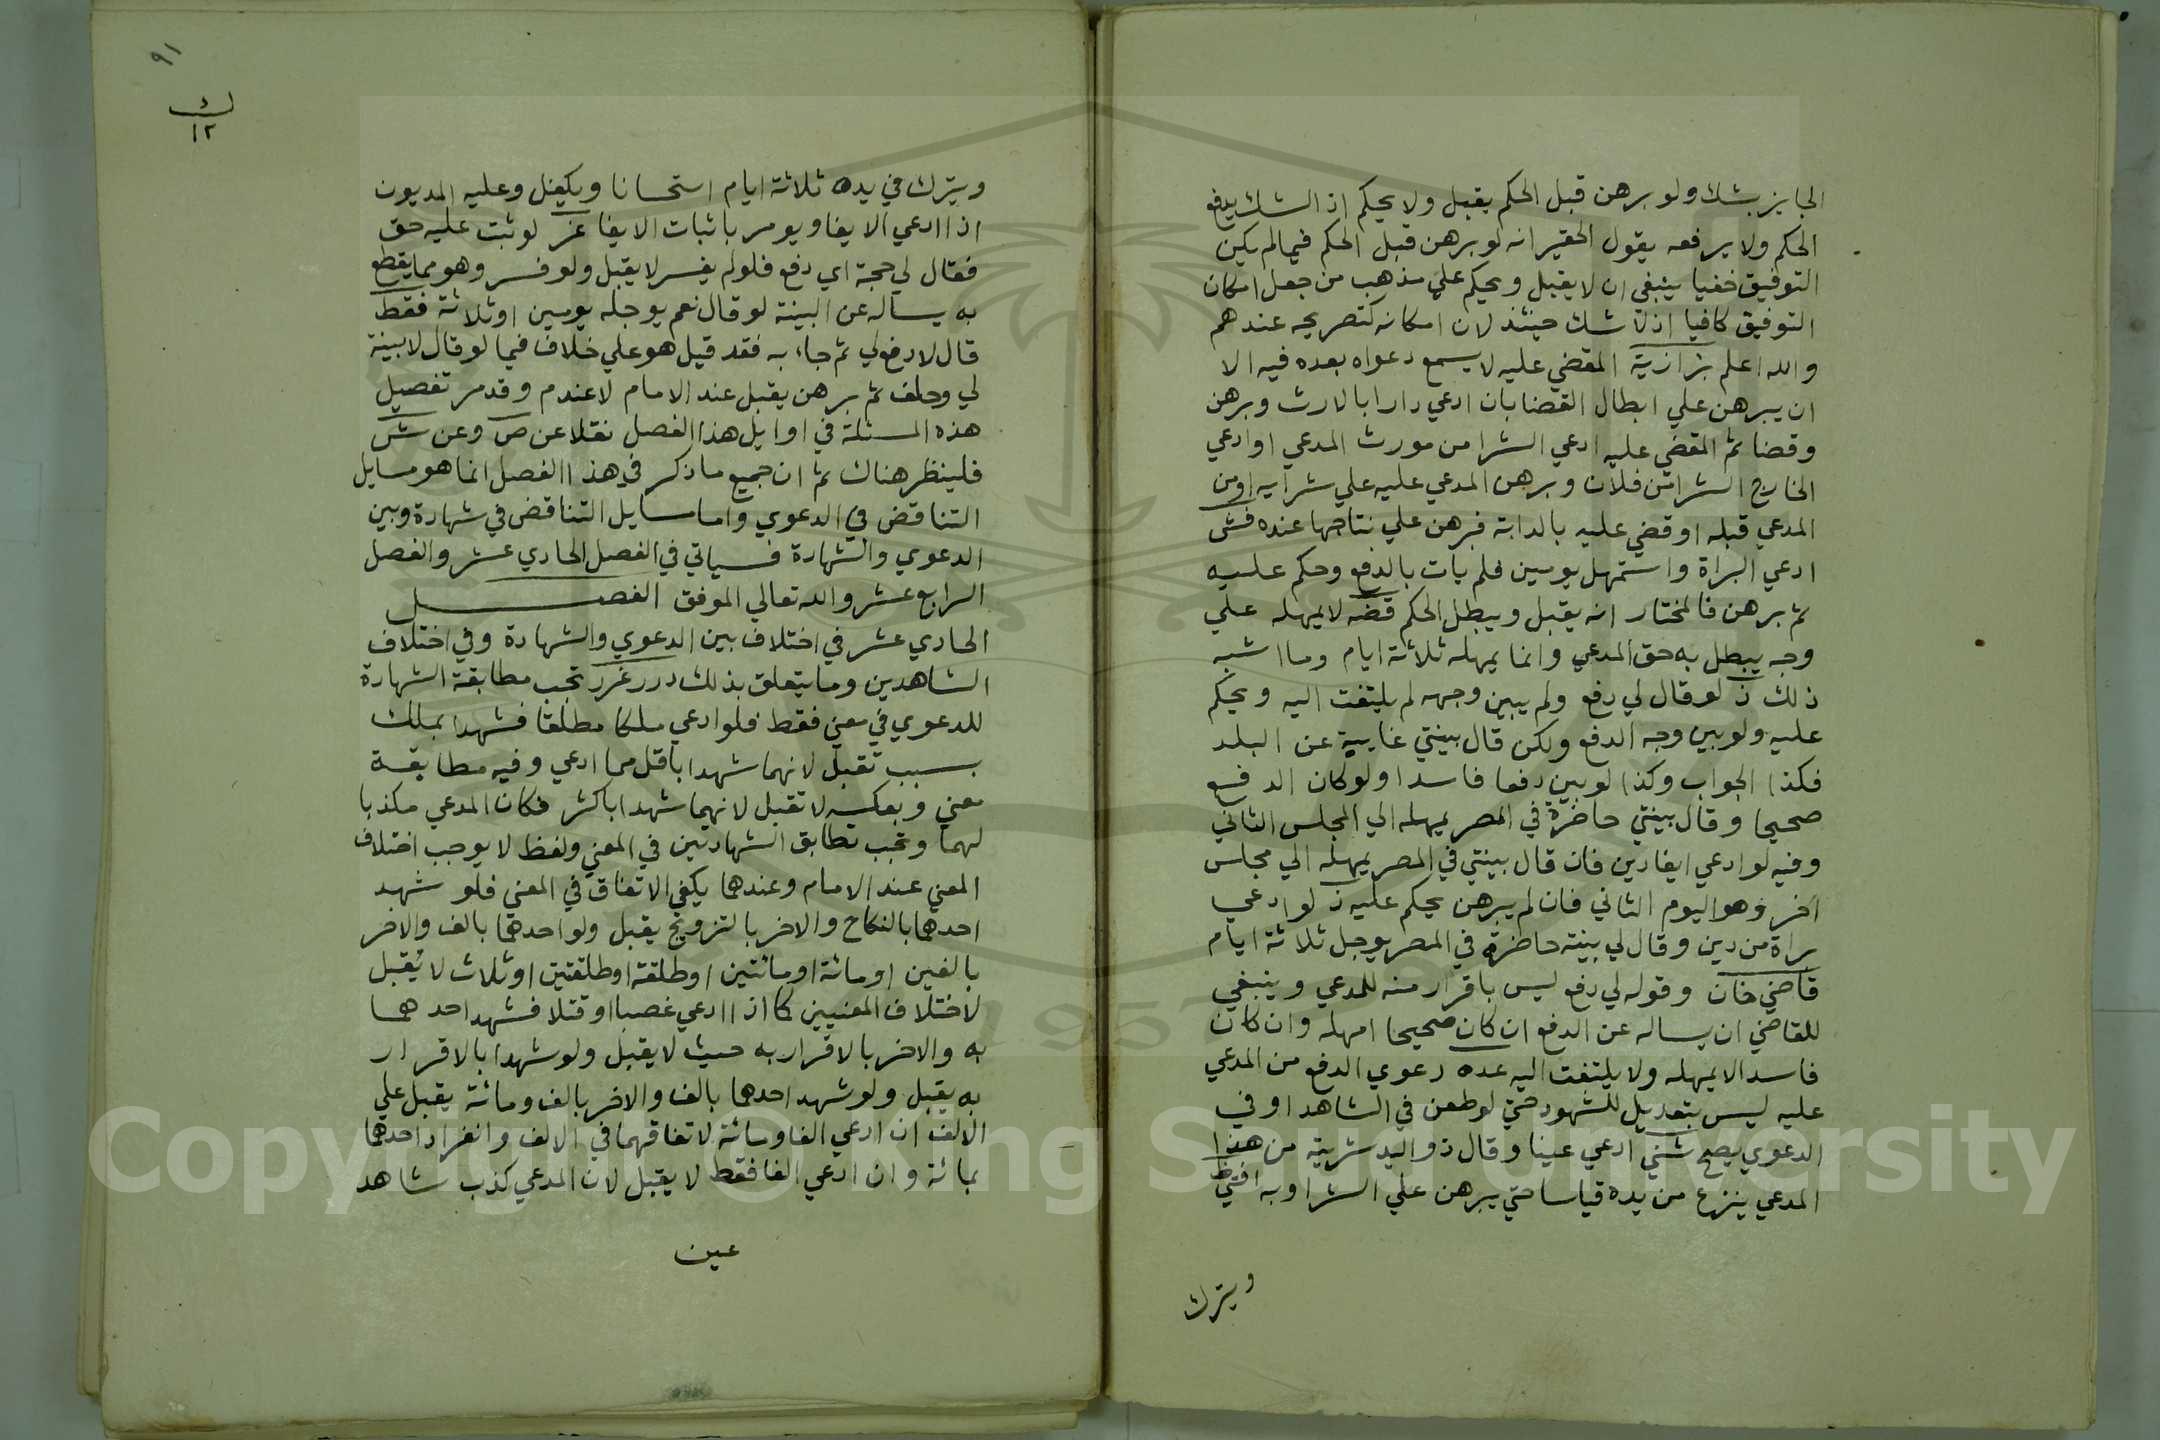 الجايز بشك ولو برهن قبل الحكم يقبل ولا يحكم اذ الشك يدفع
الحكم ولا يرفعه يقول الحقير انه لو برهن قبل الحكم فيما لم يكن
التوفيق خفيا ينبغي ان لا يقبل ويحكم على مذهب من جعل امكان
التوفيق كافيا اذ لا شك حينئذ لان امكانه كتصريحه عندهم
والله اعلم بزازية المقضي عليه لا يسمع دعواه بعده فيه الا
ان يبرهن علي ابطال القضا بان ادعي دارا بالارث وبرهن
وقضا ثم المقضي عليه ادعي الشرا من مورث المدعي او ادعي
الخارج الشرا من فلان وبرهن المدعي عليه علي شرايه او من
المدعي قبله او قضي عليه بالدابة فبرهن علي نتاجها عنده فش
ادعي البراة واستمهل يومين فلم يات بالدفع وحكم عليه
ثم برهن فالمختار انه يقبل ويبطل الحكم قضه لا يمهله علي
وجه يبطل به حق المدعي وانما يمهله ثلاثة ايام وما اشبه
ذلك ن لو قال لي دفع ولم يبين وجهه لم يلتفت اليه ويحكم
عليه ولو بين وجه الدفع ولكن قال بينتي غايبة عن البلد
فكذا الجواب وكذا لو بين دفعا فاسدا ولو كان الدفع
صحيحا وقال بينتي حاضرة في المصر يمهله الي المجلس الثاني
وفيه لو ادعي ايفا دين فان قال بينتي في المصر يمهله الي مجلس
آخر وهو اليوم الثاني فان لم يبرهن يحكم عليه ن لو ادعي
براة من دين وقال لي بينة حاضرة في المصر يوجل ثلاثة ايام
قاضي خان وقوله لي دفع ليس باقرار منه للمدعي وينبغي
للقاضي ان يساله عن الدفع ان كان صحيحا امهله وان كان
فاسدا لا يمهله ولا يلتفت اليه عده دعوي الدفع من المدعي
عليه ليس بتعديل للشهود حتي لو طعن في الشاهد او في
الدعوي يصح شني ادعي عينا وقال ذو اليد شريته من هذا
المدعي ينزع من يده قياسا حتي يبرهن علي الشرا وبه افتي ظ
ويترك
٩١
ك
١٢
ويترك في يده ثلاثة ايام استحسانا ويكفل وعليه المديون
اذا ادعي الايفا ويومر باثبات الايفا عز لو ثبت عليه حق
فقال لي حجة اي دفع فلو لم يفسر لا يقبل ولو فسر وهو مما يقطع
به يساله عن البينة لو قال نعم يوجله يومين او ثلاثة فقط
قال لا دفع لي ثم جاء به فقد قيل هو علي خلاف فيما لو قال لا بينة
لي وحلف ثم برهن يقبل عند الامام لا عندم وقد مر تفصيل
هذه المسئلة في اوايل هذا الفصل نقلا عن ص وعن ش
فلينظر هناك ثم ان جميع ما ذكر في هذا الفصل انما هو مسايل
التناقض في الدعوي واما مسايل التناقض في شهادة وبين
الدعوي والشهادة فسياتي في الفصل الحادي عشر والفصل
الرابع عشر والله تعالي الموفق الفصـــل
الحادي عشر في اختلاف بين الدعوي والشهادة وفي اختلاف
الشاهدين وما يتعلق بذلك درر غرر تجب مطابقة الشهادة
للدعوي في معني فقط فلو ادعي ملكا مطلقا فشهدا بملك
بسبب تقبل لانهما شهدا باقل مما ادعي وفيه مطابقة
معني وبعكسه لا تقبل لانهما شهدا باكثر فكان المدعي مكذبا
لهما وتجب تطابق الشهادتين في المعني ولفظ لا يوجب اختلاف
المعني عند الامام وعندهما يكفي الاتفاق في المعني فلو شهد
احدهما بالنكاح والاخر بالتزويج يقبل ولو احدهما بالف والاخر
بالفين او مائة او مائتين او طلقة او طلقتين او ثلاث لا يقبل
لاختلاف المعنيين كما اذا ادعي غصبا او قتلا فشهد احدهما
به والاخر بالاقرار به حيث لا يقبل ولو شهدا بالاقرار
به يقبل ولو شهد احدهما بالف والاخر بالف ومائة يقبل علي
الالف ان ادعي الفا ومائة لاتفاقهما في الالف وانفراد احدهما
بمائة وان ادعي الفا فقط لا يقبل لان المدعي كذب شاهد
عين
Copyright © King Saud University
1957